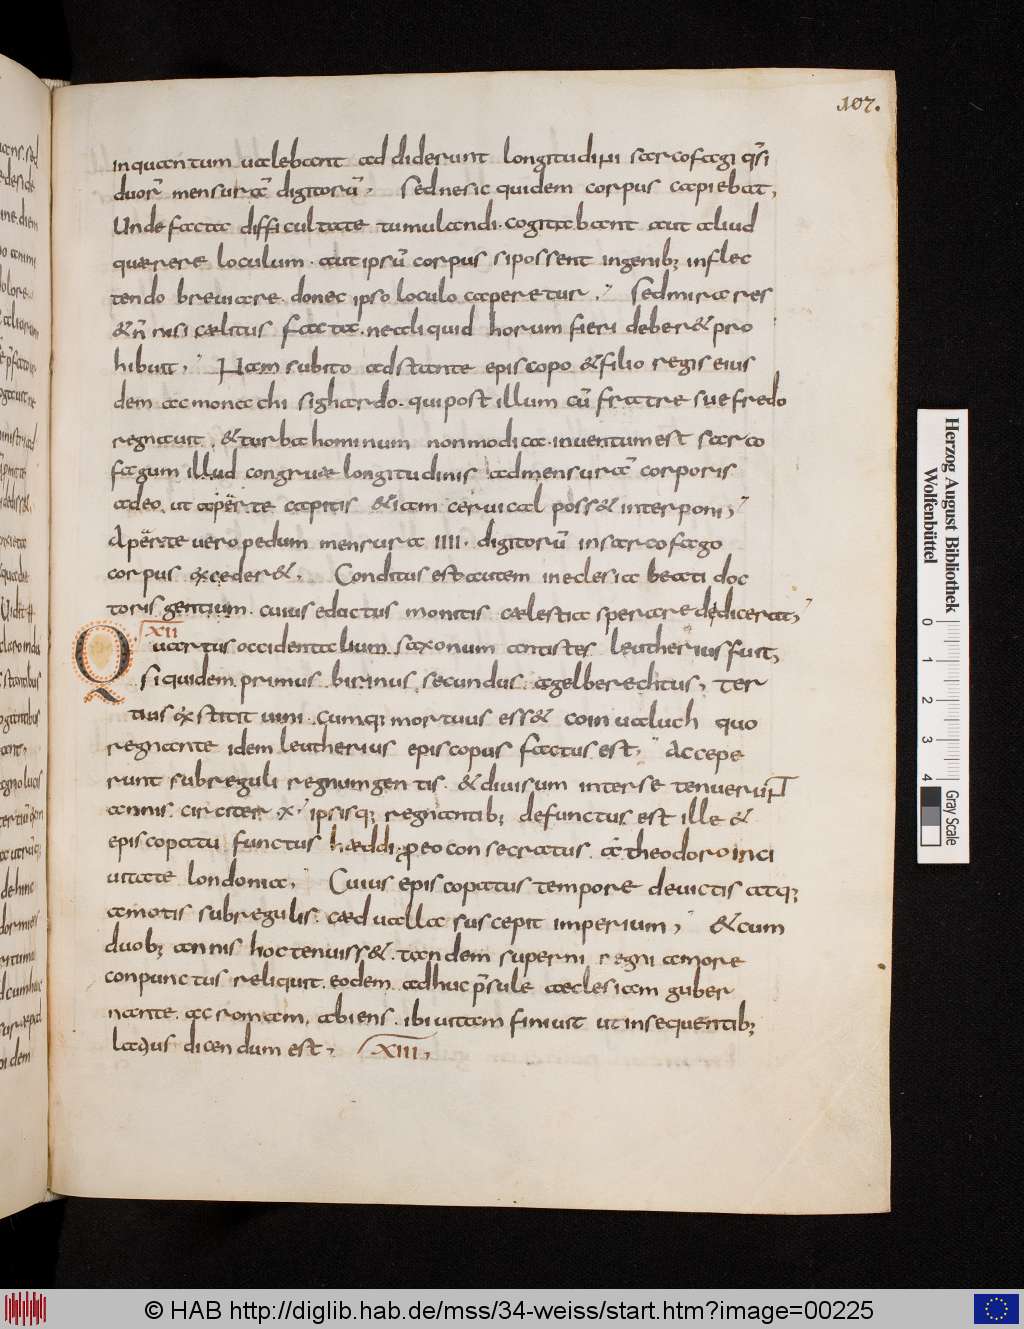 107.
inquantum ualebant addiderunt longitudini sarcofagi q̄si
duorū mensurā digitorū; Sed nec sic quidem corpus capiebat;
Unde facta difficultate tumulandi. cogitabant aut aliud
quærere loculum. aut ipsū corpus si possent in genib; inflec
tendo breuiare. donec ipso loculo caperetur; Sed mira res
& n̄ nisi cælitus facta. ne aliquid horum fieri deber& pro
hibuit; Nam subito adstante episcopo & filio regis eius
dem ac monachi sighardo. qui post illum cū fratre suefredo
regnauit. & turba hominum non modica. inuentum est sarco
fagum illud congruæ longitudinis ad mensurā corporis
adeo. ut a parte capitis &iam ceruical poss& interponi;
A parte uero pedum mensura IIII. digitorū in sarcofago
corpus exceder&; Conditus est autem in eclesia beati doc
toris gentium. cuius edoctus monitis cælestia sperare dedicerat;
XII
Quartus occidentalium saxonum antistes leutherius fuit;
Siquidem primus birinus. secundus agelberechtus; ter
tius exstitit uini. Cumq; mortuus ess& coinualuch quo
regnante idem leutherius episcopus factus est; Accepe
runt subreguli regnum gentis. & diuisum inter se tenuerunt
annis circiter. x. ipsisq; regnantib; defunctus est ille &
episcopatu functus hæddi; pro eo consecratus a theodoro in ci
uitate londonia; Cuius episcopatus tempore deuictis atq;
amotis subregulis. cæduualla suscepit imperium; & cum
duob; annis hoc tenuiss&. tandem superni regni amore
conpunctus reliquit. eodem adhuc p̄sule aeclesiam guber
nante. ac romam. abiens. ibi uitam finiuit ut in sequentib;
latius dicendum est; XIII;
Herzog August Bibliothek
Wolfenbüttel
0 1 2 3 4
Gray Scale
© HAB http://diglib.hab.de/mss/34-weiss/start.htm?image=00225